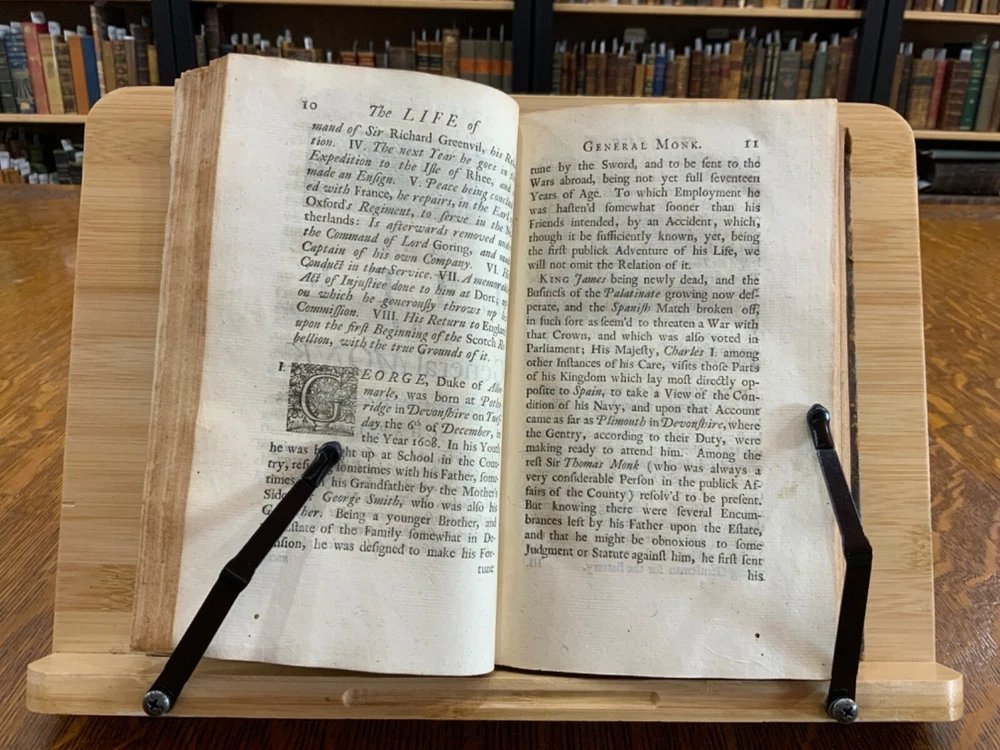 10
The LIFE of
mand of Sir Richard Greenvil, his
tion. IV. The next Year he goes in
Expedition to the Iſle of Rhee, and
made an Enſign. V. Peace being
ed with France, he repairs, in the
Oxford's Regiment, to ſerve in the
therlands: Is afterwards removed
the Command of Lord Goring, and
Captain of his own Company. VI.
Conduct in that Service. VII. A
Act of Injuſtice done to him at Dort;
on which he generouſly throws up
Commiſſion. VIII. His Return to
upon the firſt Beginning of the Scotch
bellion, with the true Grounds of it.
I. GEORGE, Duke of
marle, was born at
ridge in Devonſhire on
day the 6th of December, in
the Year 1608. In his Youth
he was ht up at School in the Coun-
try, ſometimes with his Father, ſome-
times his Grandfather by the Mother's
George Smith, who was alſo his
Being a younger Brother, and
Eſtate of the Family ſomewhat in De-
he was deſigned to make his For-
tune
GENERAL MONK. 11
tune by the Sword, and to be ſent to the
Wars abroad, being not yet full ſeventeen
Years of Age. To which Employment he
was haſten'd ſomewhat ſooner than his
Friends intended, by an Accident, which,
though it be ſufficiently known, yet, being
the firſt publick Adventure of his Life, we
will not omit the Relation of it.
KING James being newly dead, and the
Buſineſs of the Palatinate growing now deſ-
perate, and the Spaniſh Match broken off,
in ſuch ſort as ſeem'd to threaten a War with
that Crown, and which was alſo voted in
Parliament; His Majeſty, Charles I. among
other Inſtances of his Care, viſits thoſe Parts
of his Kingdom which lay moſt directly op-
poſite to Spain, to take a View of the Con-
dition of his Navy, and upon that Account
came as far as Plimouth in Devonſhire, where
the Gentry, according to their Duty, were
making ready to attend him. Among the
reſt Sir Thomas Monk (who was always a
very conſiderable Perſon in the publick Af-
fairs of the County) reſolv'd to be preſent.
But knowing there were ſeveral Encum-
brances left by his Father upon the Eſtate,
and that he might be obnoxious to ſome
Judgment or Statute againſt him, he firſt ſent
his